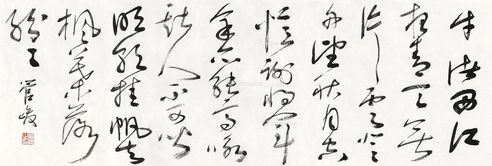 牛渚西江
夜青天無
片雲登
舟望秋月空
憶謝將軍
余亦能高詠
斯人不可聞
明朝挂帆去
楓葉落
紛々 管峻